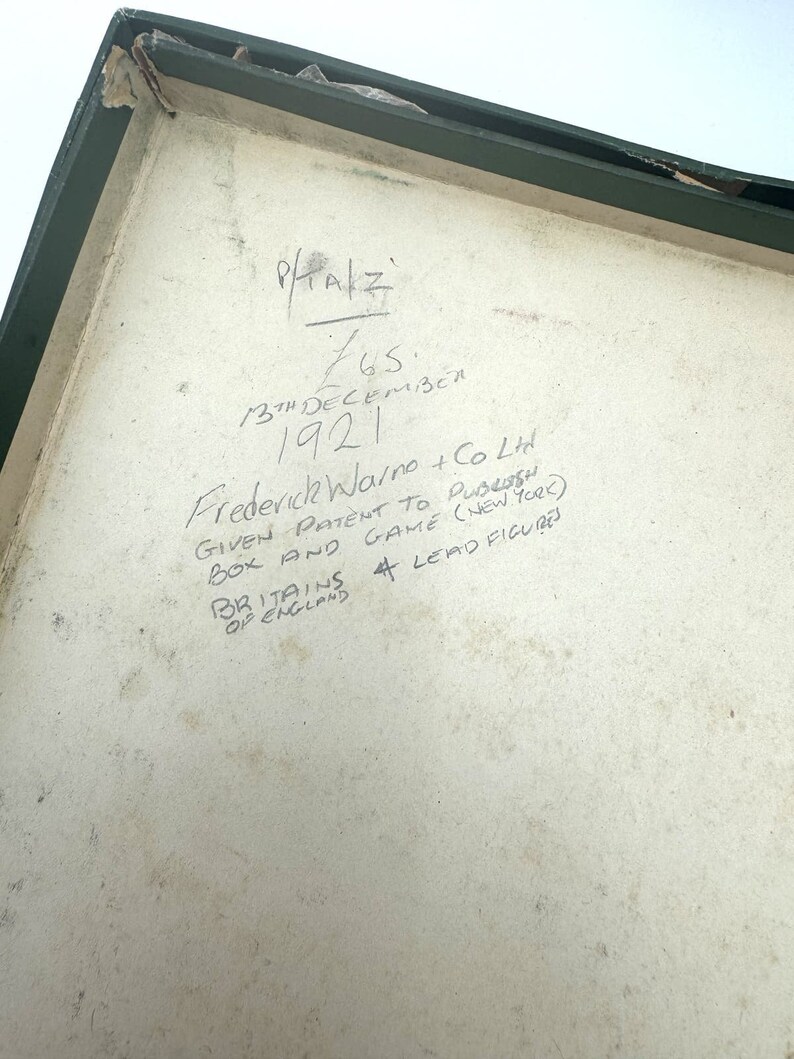 P/TA/Z
£65.
13TH DECEMBER
1921
Frederick Warne + Co Ltd
GIVEN PATENT TO PUBLISH
BOX AND GAME (NEW YORK)
BRITAINS 4 LEAD FIGURES
OF ENGLAND